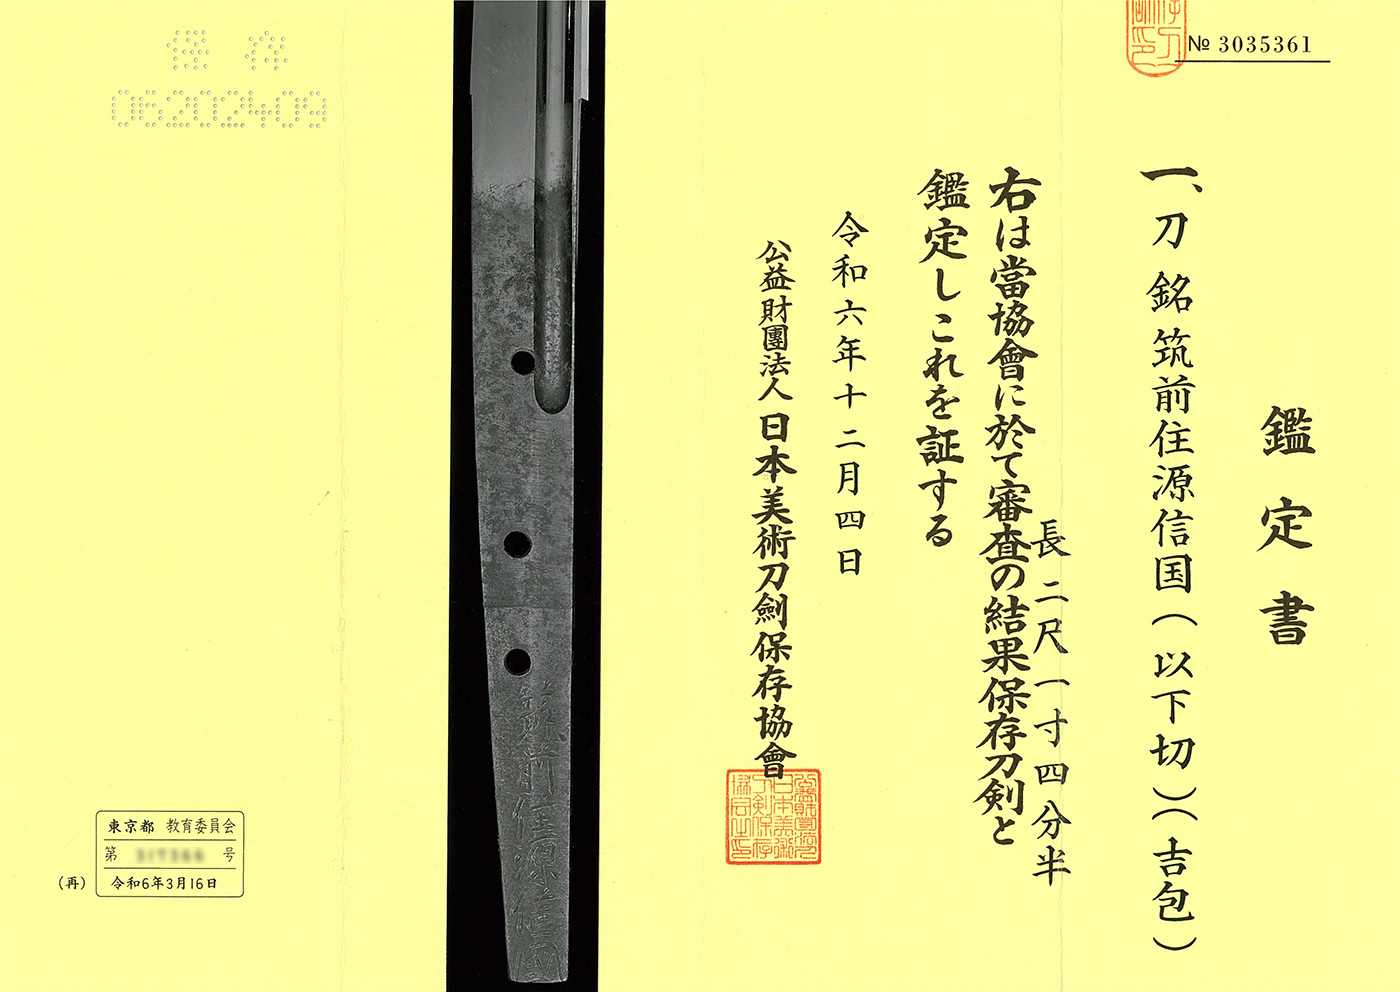 № 3035361
鑑定書
一、刀 銘 筑前住源信国(以下切)(吉包)
長二尺一寸四分半
右は當協會に於て審査の結果保存刀剣と
鑑定しこれを証する
令和六年十二月四日
公益財團法人日本美術刀劍保存協會
保存
06202409
東京都 教育委員会
第 号
(再) 令和6年3月16日